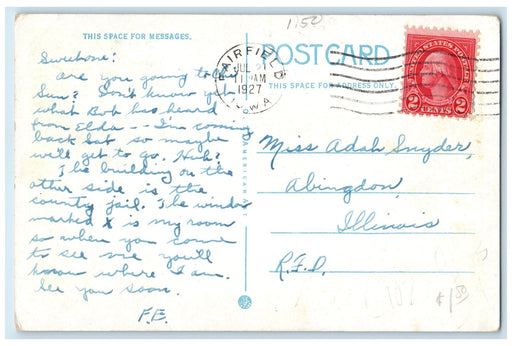 1150
THIS SPACE FOR MESSAGES.
POST CARD
THIS SPACE FOR ADDRESS ONLY.
FAIRFIELD
JUL
11 AM
1927
IOWA
UNITED STATES POSTAGE
2 CENTS 2
Are you going to be
Sun? Don't know yet
what Bob has heard
from Elda -- I'm coming
back but so maybe
we'll get to go. Huh?
The building on the
other side is the
county jail. The window
marked X is my room
so when you come
to see me you'll
know where I am.
See you soon.
F.E.
Miss Adah Snyder,
Abingdon,
Illinois
R.F.D.
$1.50